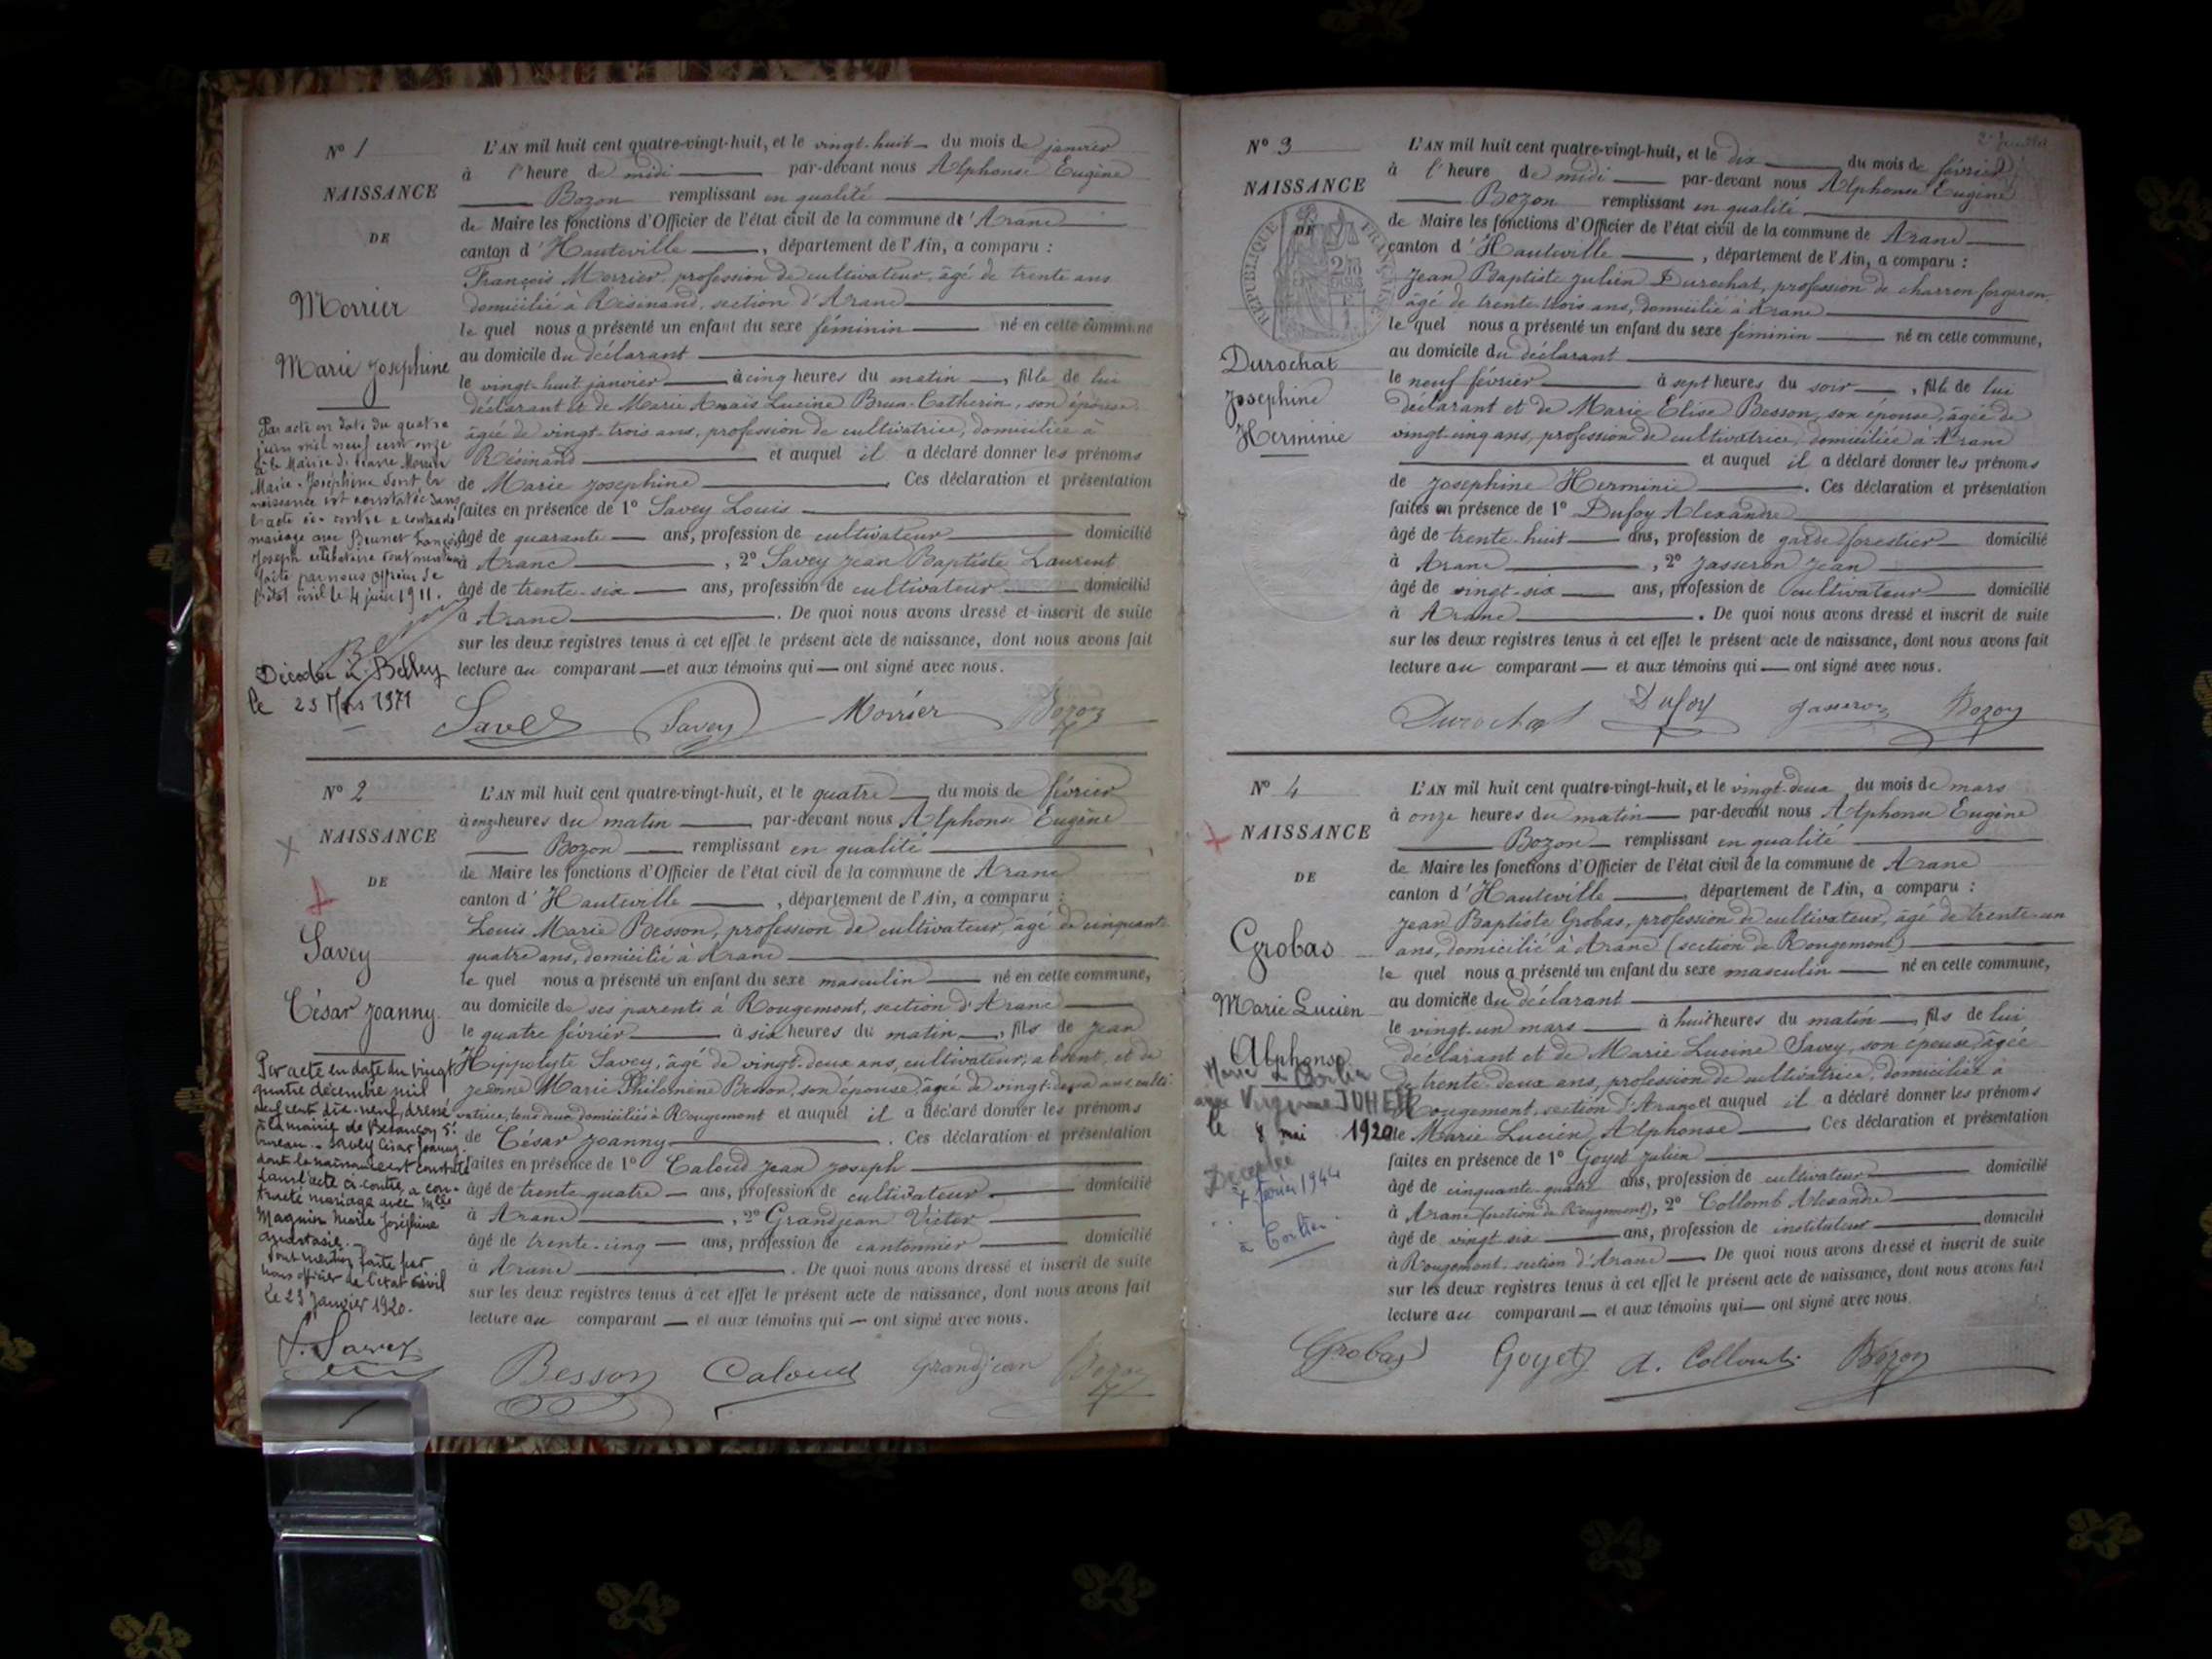 Nº 1
NAISSANCE
DE
Morrier
Marie Josephine
Par acte en date du quatre
juin mil neuf cent onze
Marie-Joséphine dont la
naissance est constatée dans
l'acte ci-contre a contracté
mariage avec Brunet François
Joseph célibataire dont mention
faite par nous officier de
l'état civil le 4 juin 1911.
Décédée à Belley
le 23 Mars 1971
L'AN mil huit cent quatre-vingt-huit, et le vingt-huit du mois de janvier
à l'heure de midi par-devant nous Alphonse Eugène
Bozon remplissant en qualité
de Maire les fonctions d'Officier de l'état civil de la commune d'Aranc
canton d'Hauteville, département de l'Ain, a comparu :
François Morrier, profession de cultivateur, âgé de trente ans
domicilié à Résinand, section d'Aranc
le quel nous a présenté un enfant du sexe féminin né en cette commune
au domicile du déclarant
le vingt-huit janvier à cinq heures du matin, fille de lui
déclarant et de Marie Anaïs Lucine Brun-Catherin, son épouse
âgée de vingt-trois ans, profession de cultivatrice, domiciliée à
Résinand et auquel il a déclaré donner les prénoms
de Marie Josephine. Ces déclaration et présentation
faites en présence de 1º Savey Louis
âgé de quarante ans, profession de cultivateur domicilié
à Aranc, 2º Savey Jean Baptiste Laurent
âgé de trente-six ans, profession de cultivateur domicilié
à Aranc. De quoi nous avons dressé et inscrit de suite
sur les deux registres tenus à cet effet le présent acte de naissance, dont nous avons fait
lecture au comparant et aux témoins qui ont signé avec nous.
Savey Savey Morrier Bozon
Nº 2
NAISSANCE
DE
Savey
César Joanny
Par acte en date du vingt
quatre décembre mil
neuf cent dix-neuf, dressé
à la mairie de Besançon 5e
bureau. Savey César Joanny
dont la naissance est constatée
dans l'acte ci-contre, a con-
tracté mariage avec Mlle
Magnin Marie Joséphine
Anastasie.
Dont mention faite par
nous officier de l'état civil
le 23 Janvier 1920.
J. Savey
L'AN mil huit cent quatre-vingt-huit, et le quatre du mois de février
à onze heures du matin par-devant nous Alphonse Eugène
Bozon remplissant en qualité
de Maire les fonctions d'Officier de l'état civil de la commune de Aranc
canton d'Hauteville, département de l'Ain, a comparu :
Louis Marie Besson, profession de cultivateur, âgé de cinquante
quatre ans, domicilié à Aranc
le quel nous a présenté un enfant du sexe masculin né en cette commune,
au domicile de ses parents à Rougemont, section d'Aranc
le quatre février à six heures du matin, fils de Jean
Hippolyte Savey, âgé de vingt-deux ans, cultivateur, absent, et de
Jeanne Marie Philomène Besson, son épouse, âgée de vingt-deux ans culti-
vatrice, tous deux domiciliés à Rougemont et auquel il a déclaré donner les prénoms
de César Joanny. Ces déclaration et présentation
faites en présence de 1º Caloud Jean Joseph
âgé de trente-quatre ans, profession de cultivateur domicilié
à Aranc, 2º Grandjean Victor
âgé de trente-cinq ans, profession de cantonnier domicilié
à Aranc. De quoi nous avons dressé et inscrit de suite
sur les deux registres tenus à cet effet le présent acte de naissance, dont nous avons fait
lecture au comparant et aux témoins qui ont signé avec nous.
Besson Caloud Grandjean Bozon
Nº 3
NAISSANCE
DE
RÉPUBLIQUE FRANÇAISE
Durochat
Josephine
Herminie
L'AN mil huit cent quatre-vingt-huit, et le dix du mois de février
à l'heure de midi par-devant nous Alphonse Eugène
Bozon remplissant en qualité
de Maire les fonctions d'Officier de l'état civil de la commune de Aranc
canton d'Hauteville, département de l'Ain, a comparu :
Jean Baptiste Julien Durochat, profession de charron forgeron,
âgé de trente-trois ans, domicilié à Aranc
le quel nous a présenté un enfant du sexe féminin né en cette commune,
au domicile du déclarant
le neuf février à sept heures du soir, fille de lui
déclarant et de Marie Elise Besson, son épouse, âgée de
vingt-cinq ans, profession de cultivatrice, domiciliée à Aranc
et auquel il a déclaré donner les prénoms
de Josephine Herminie. Ces déclaration et présentation
faites en présence de 1º Dufoy Alexandre
âgé de trente-huit ans, profession de garde forestier domicilié
à Aranc, 2º Jasseron Jean
âgé de vingt-six ans, profession de cultivateur domicilié
à Aranc. De quoi nous avons dressé et inscrit de suite
sur les deux registres tenus à cet effet le présent acte de naissance, dont nous avons fait
lecture au comparant et aux témoins qui ont signé avec nous.
Durochat Dufoy Jasseron Bozon
Nº 4
NAISSANCE
DE
Grobas
Marie Lucien
Alphonse
Marié à Corlier
avec
le 8 mai 1920
Décédé
février 1944
à Corlier
L'AN mil huit cent quatre-vingt-huit, et le vingt-deux du mois de mars
à onze heures du matin par-devant nous Alphonse Eugène
Bozon remplissant en qualité
de Maire les fonctions d'Officier de l'état civil de la commune de Aranc
canton d'Hauteville, département de l'Ain, a comparu :
Jean Baptiste Grobas, profession de cultivateur, âgé de trente-un
ans, domicilié à Aranc (section de Rougemont)
le quel nous a présenté un enfant du sexe masculin né en cette commune,
au domicile du déclarant
le vingt-un mars à huit heures du matin, fils de lui
déclarant et de Marie Lucine Savey, son épouse, âgée
de trente-deux ans, profession de cultivatrice, domiciliée à
Rougemont, section d'Aranc et auquel il a déclaré donner les prénoms
de Marie Lucien Alphonse. Ces déclaration et présentation
faites en présence de 1º Goyet Julien
âgé de cinquante-quatre ans, profession de cultivateur domicilié
à Aranc (section de Rougemont), 2º Collomb Alexandre
âgé de vingt six ans, profession de instituteur domicilié
à Rougemont, section d'Aranc. De quoi nous avons dressé et inscrit de suite
sur les deux registres tenus à cet effet le présent acte de naissance, dont nous avons fait
lecture au comparant et aux témoins qui ont signé avec nous.
Grobas Goyet A. Collomb Bozon